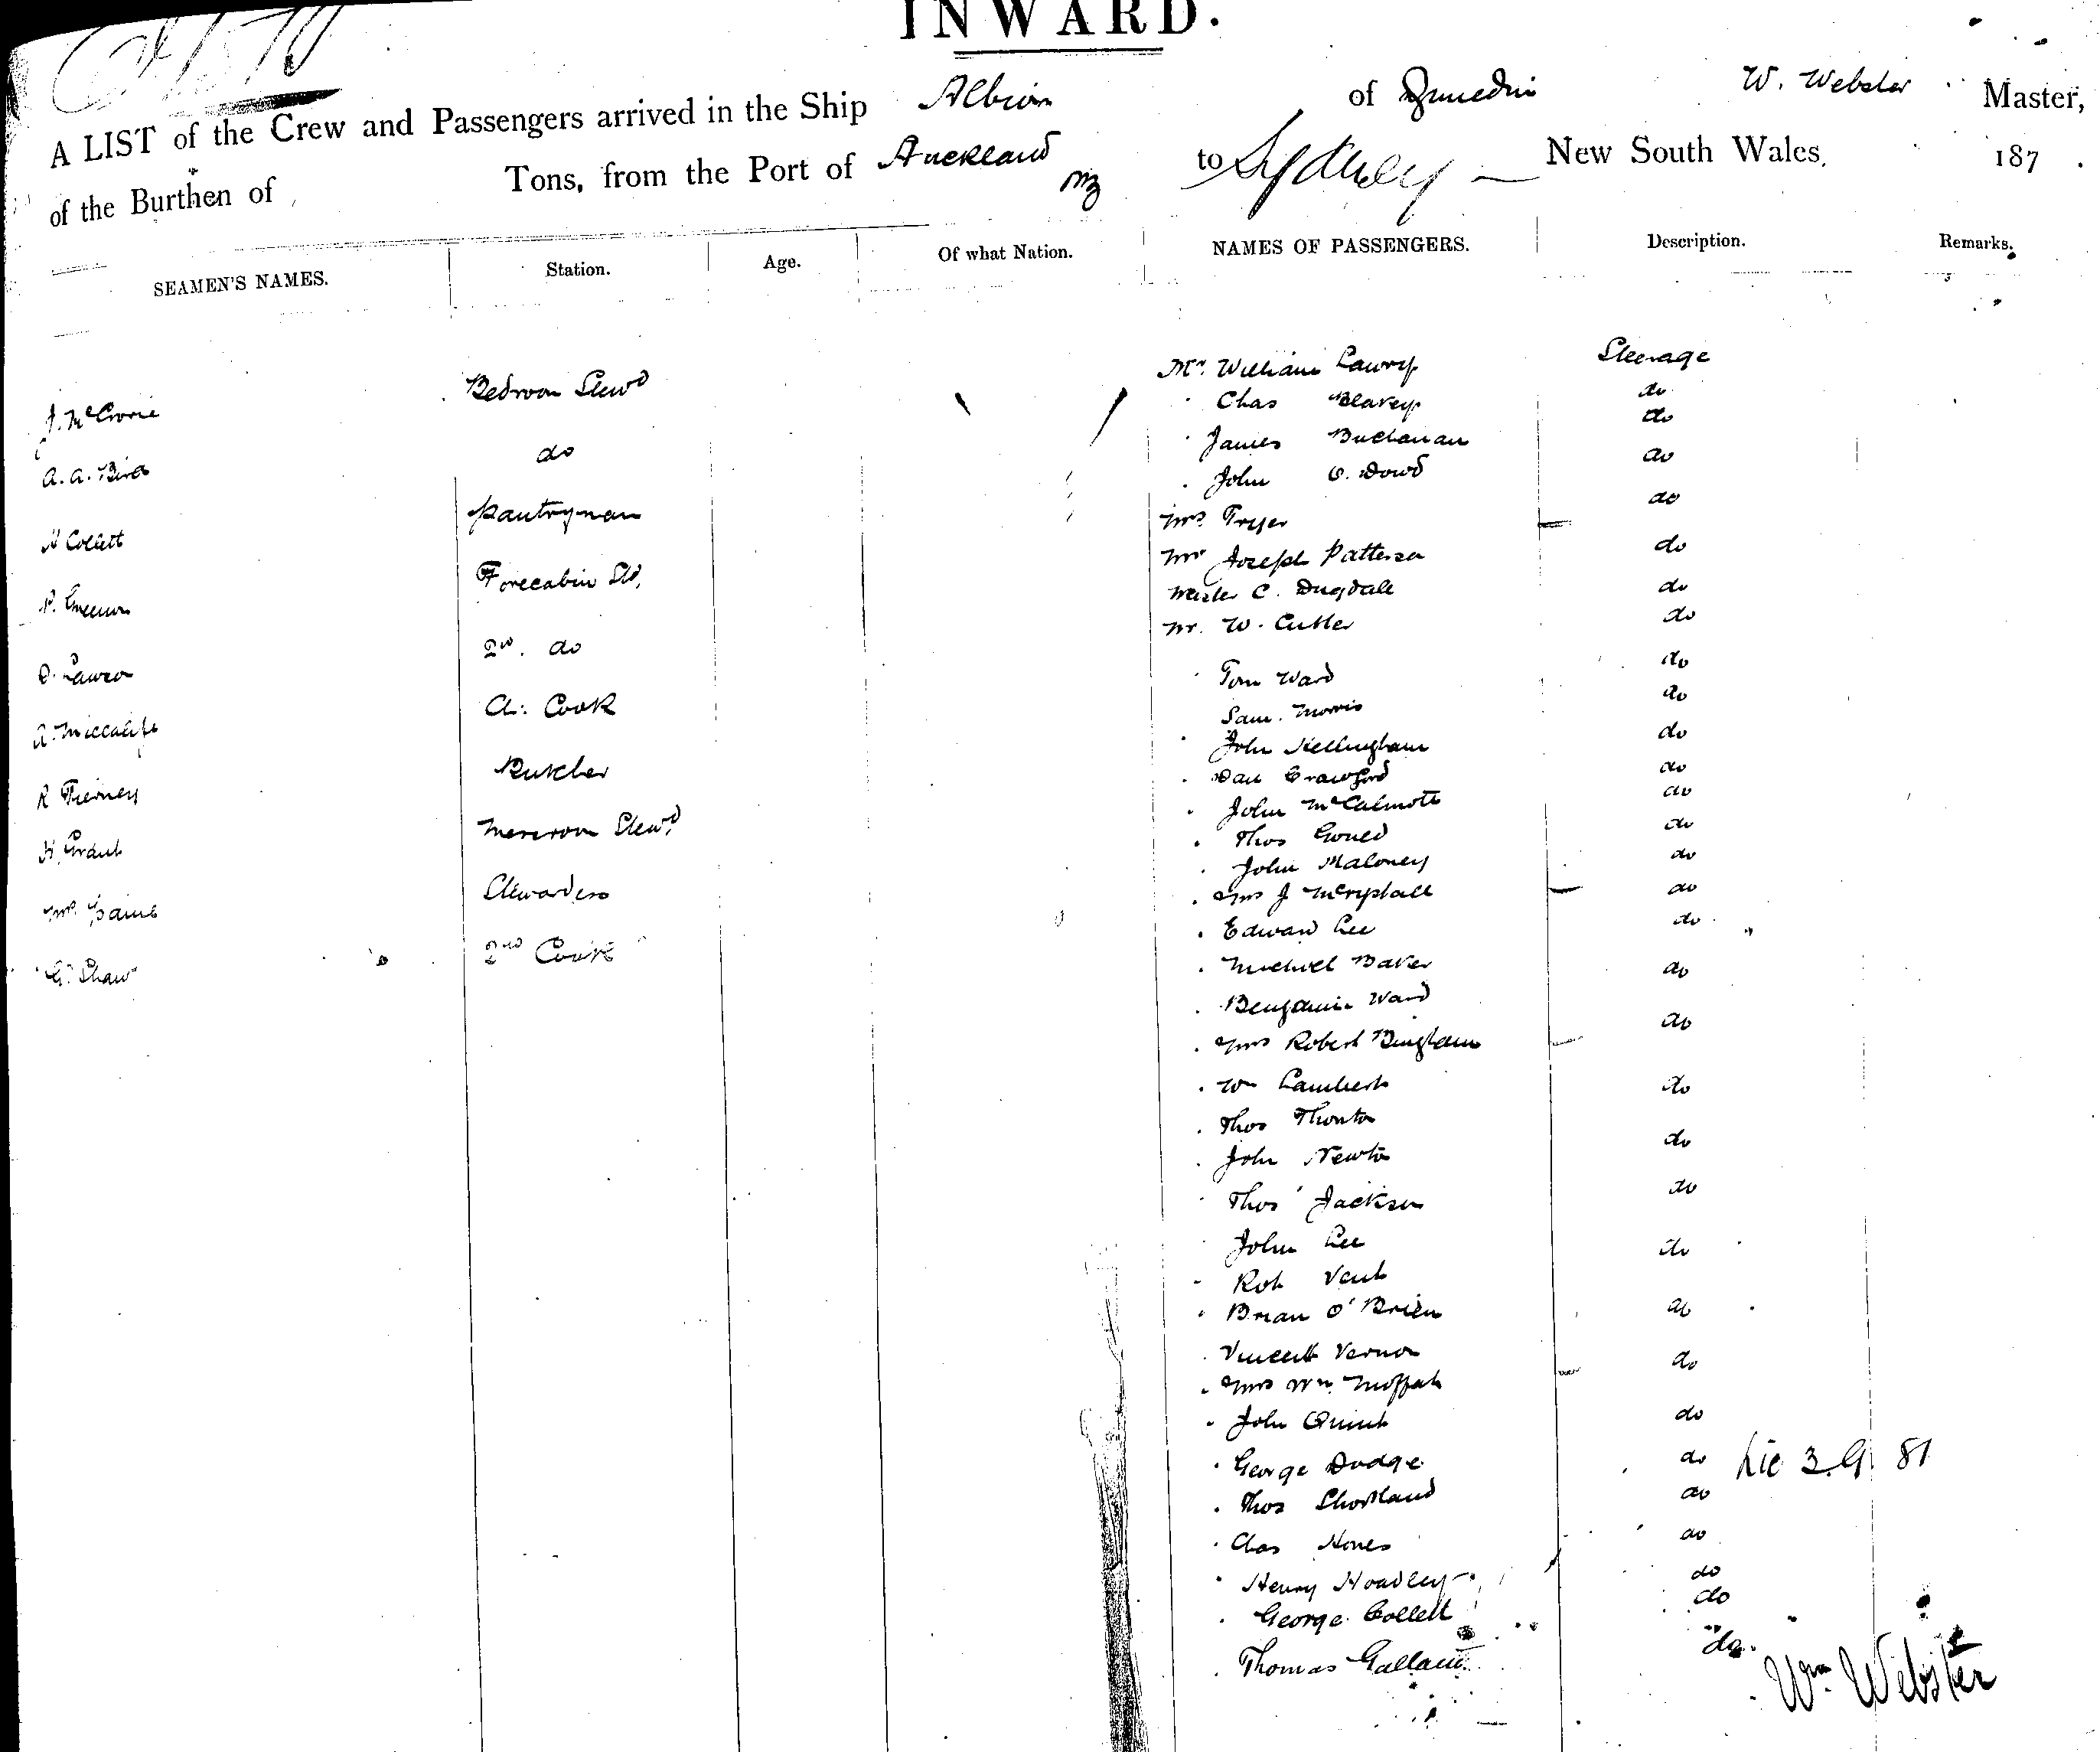 INWARD.
A LIST of the Crew and Passengers arrived in the Ship Albion of Dunedin W. Webster Master,
of the Burthen of Tons, from the Port of Auckland NZ to Sydney New South Wales, 187 .
SEAMEN'S NAMES. Station. Age. Of what Nation. NAMES OF PASSENGERS. Description. Remarks.
J. McCrorie Bedroom Stewd
A. A. Bird do
H Collett Pantryman
P. Forecabin Std.
D. 2nd. do
A. Metcalfe A. Cook
R Tierney Butcher
H. Grant Messroom Stewd.
Mrs. Stewardess
G. Shaw 2nd Cook
Mr. William Lawry Steerage
Chas Blakey do
James Buchanan do
John O. Dowd do
Mrs. Fryer do
Mr Joseph Patterson do
Master C. Dugdale do
Mr. W. Cutler do
Tom Ward do
Sam. Morris do
John Hellingham do
Dan Crawford do
John McCalmott do
Thos Gould do
John Maloney do
Mrs J do
Edward Lee do
Michael Baker do
Benjamin Ward
Mrs Robert Bingham do
Wm Lambert do
Thos Thornton
John Newton do
Thos Jackson do
John Lee do
Robt Vent
Brian O'Brien do
Vincent Vernon do
Mrs Wm. Moffat
John Quirk do
George Dodge do Lic 3. G. 81
Thos Shortland do
Chas Hones do
Henry Hoadley do
George Collett do
Thomas do.
Wm Webster